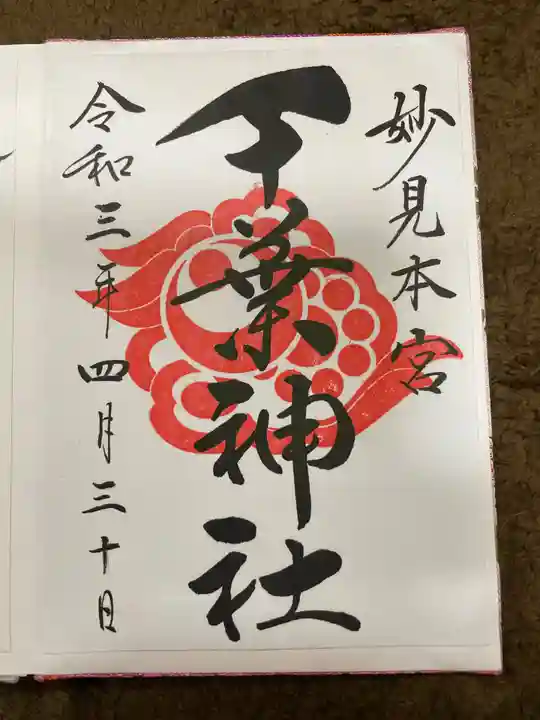 妙見本宮
千葉神社
令和三年四月三十日